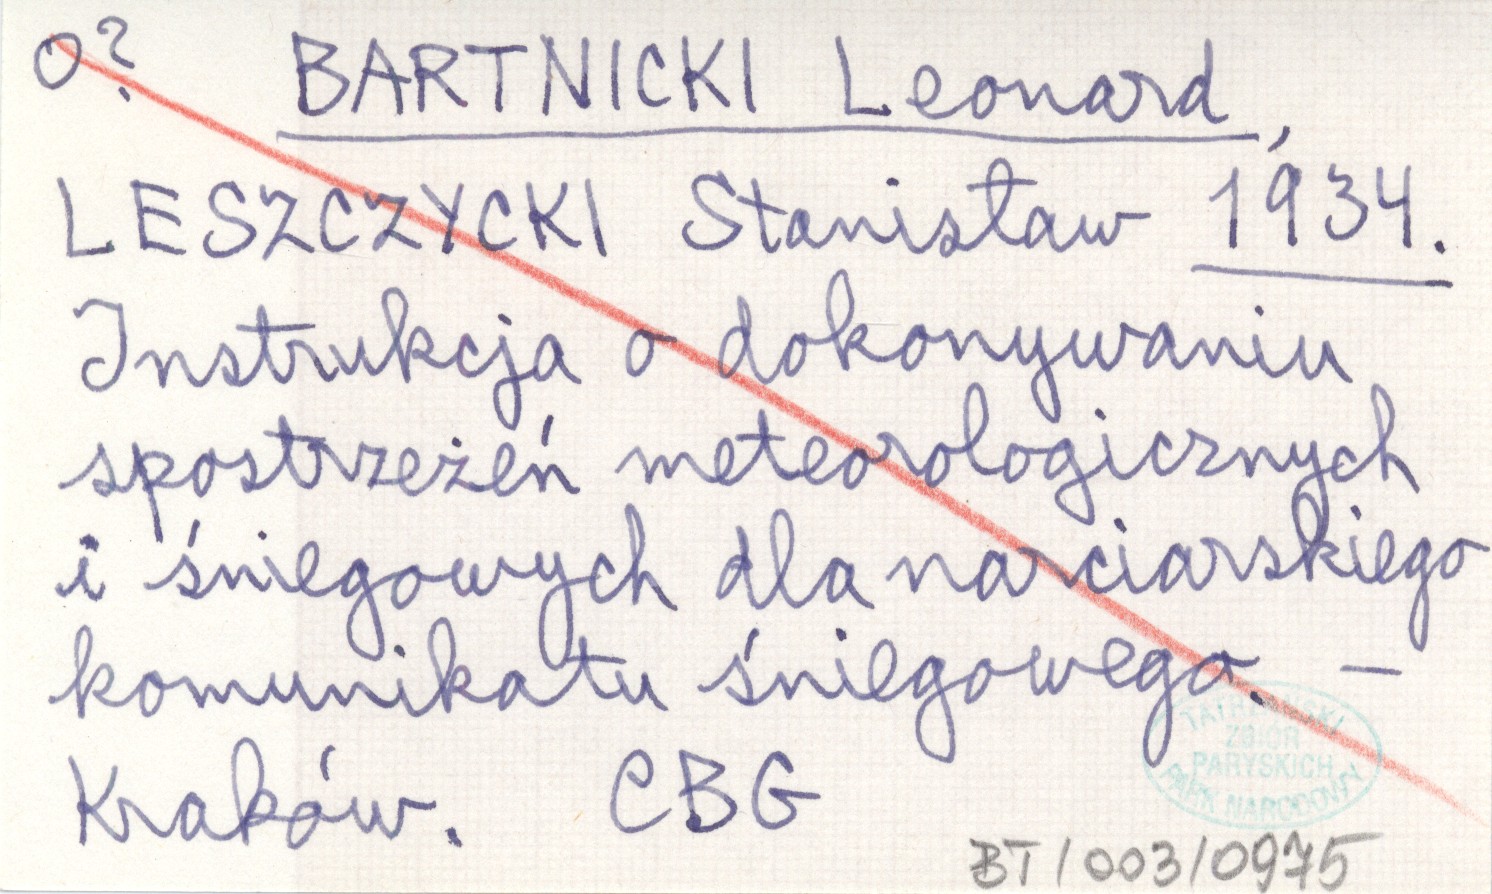 o? BARTNICKI Leonard,
LESZCZYCKI Stanisław 1934.
Instrukcja o dokonywaniu
spostrzeżeń meteorologicznych
i śniegowych dla narciarskiego
komunikatu śniegowego. –
Kraków. CBG
TATRZAŃSKI
ZBIÓR
PARYSKICH
PARK NARODOWY
BT/003/0975